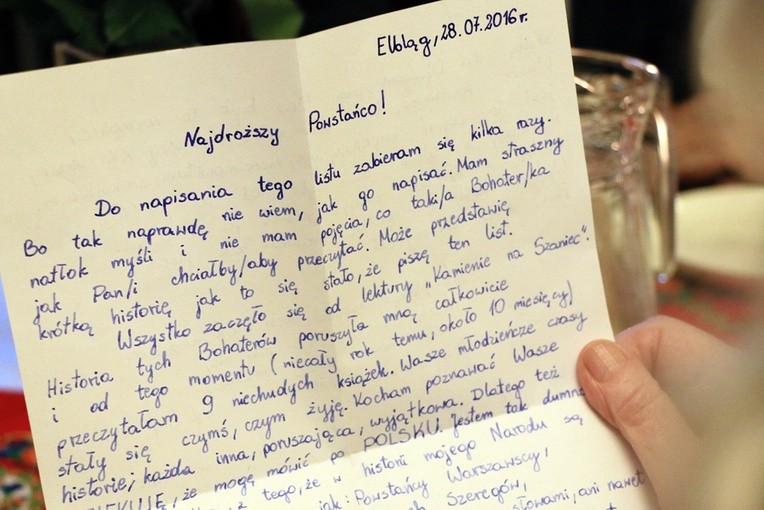 Elbląg, 28.07.2016r.
Najdroższy Powstańco!
Do napisania tego listu zabieram się kilka razy.
Bo tak naprawdę nie wiem, jak go napisać. Mam straszny
natłok myśli i nie mam pojęcia, co taki/a Bohater/ka
jak Pan/i chciałby/aby przeczytać. Może przedstawię
krótką historię jak to się stało, że piszę ten list.
Wszystko zaczęło się od lektury „Kamienie na Szaniec".
Historia tych Bohaterów poruszyła mną całkowicie
i od tego momentu (niecały rok temu, około 10 miesięcy)
przeczytałam 9 niechudych książek. Wasze młodzieńcze czasy
stały się czymś, czym żyję. Kocham poznawać Wasze
historie; każda inna, poruszająca, wyjątkowa. Dlatego też
że mogę mówić po POLSKU. Jestem tak dumna
z tego, że w historii mojego Narodu są
jak: Powstańcy Warszawscy,
Szeregów,
słowami, ani nawet